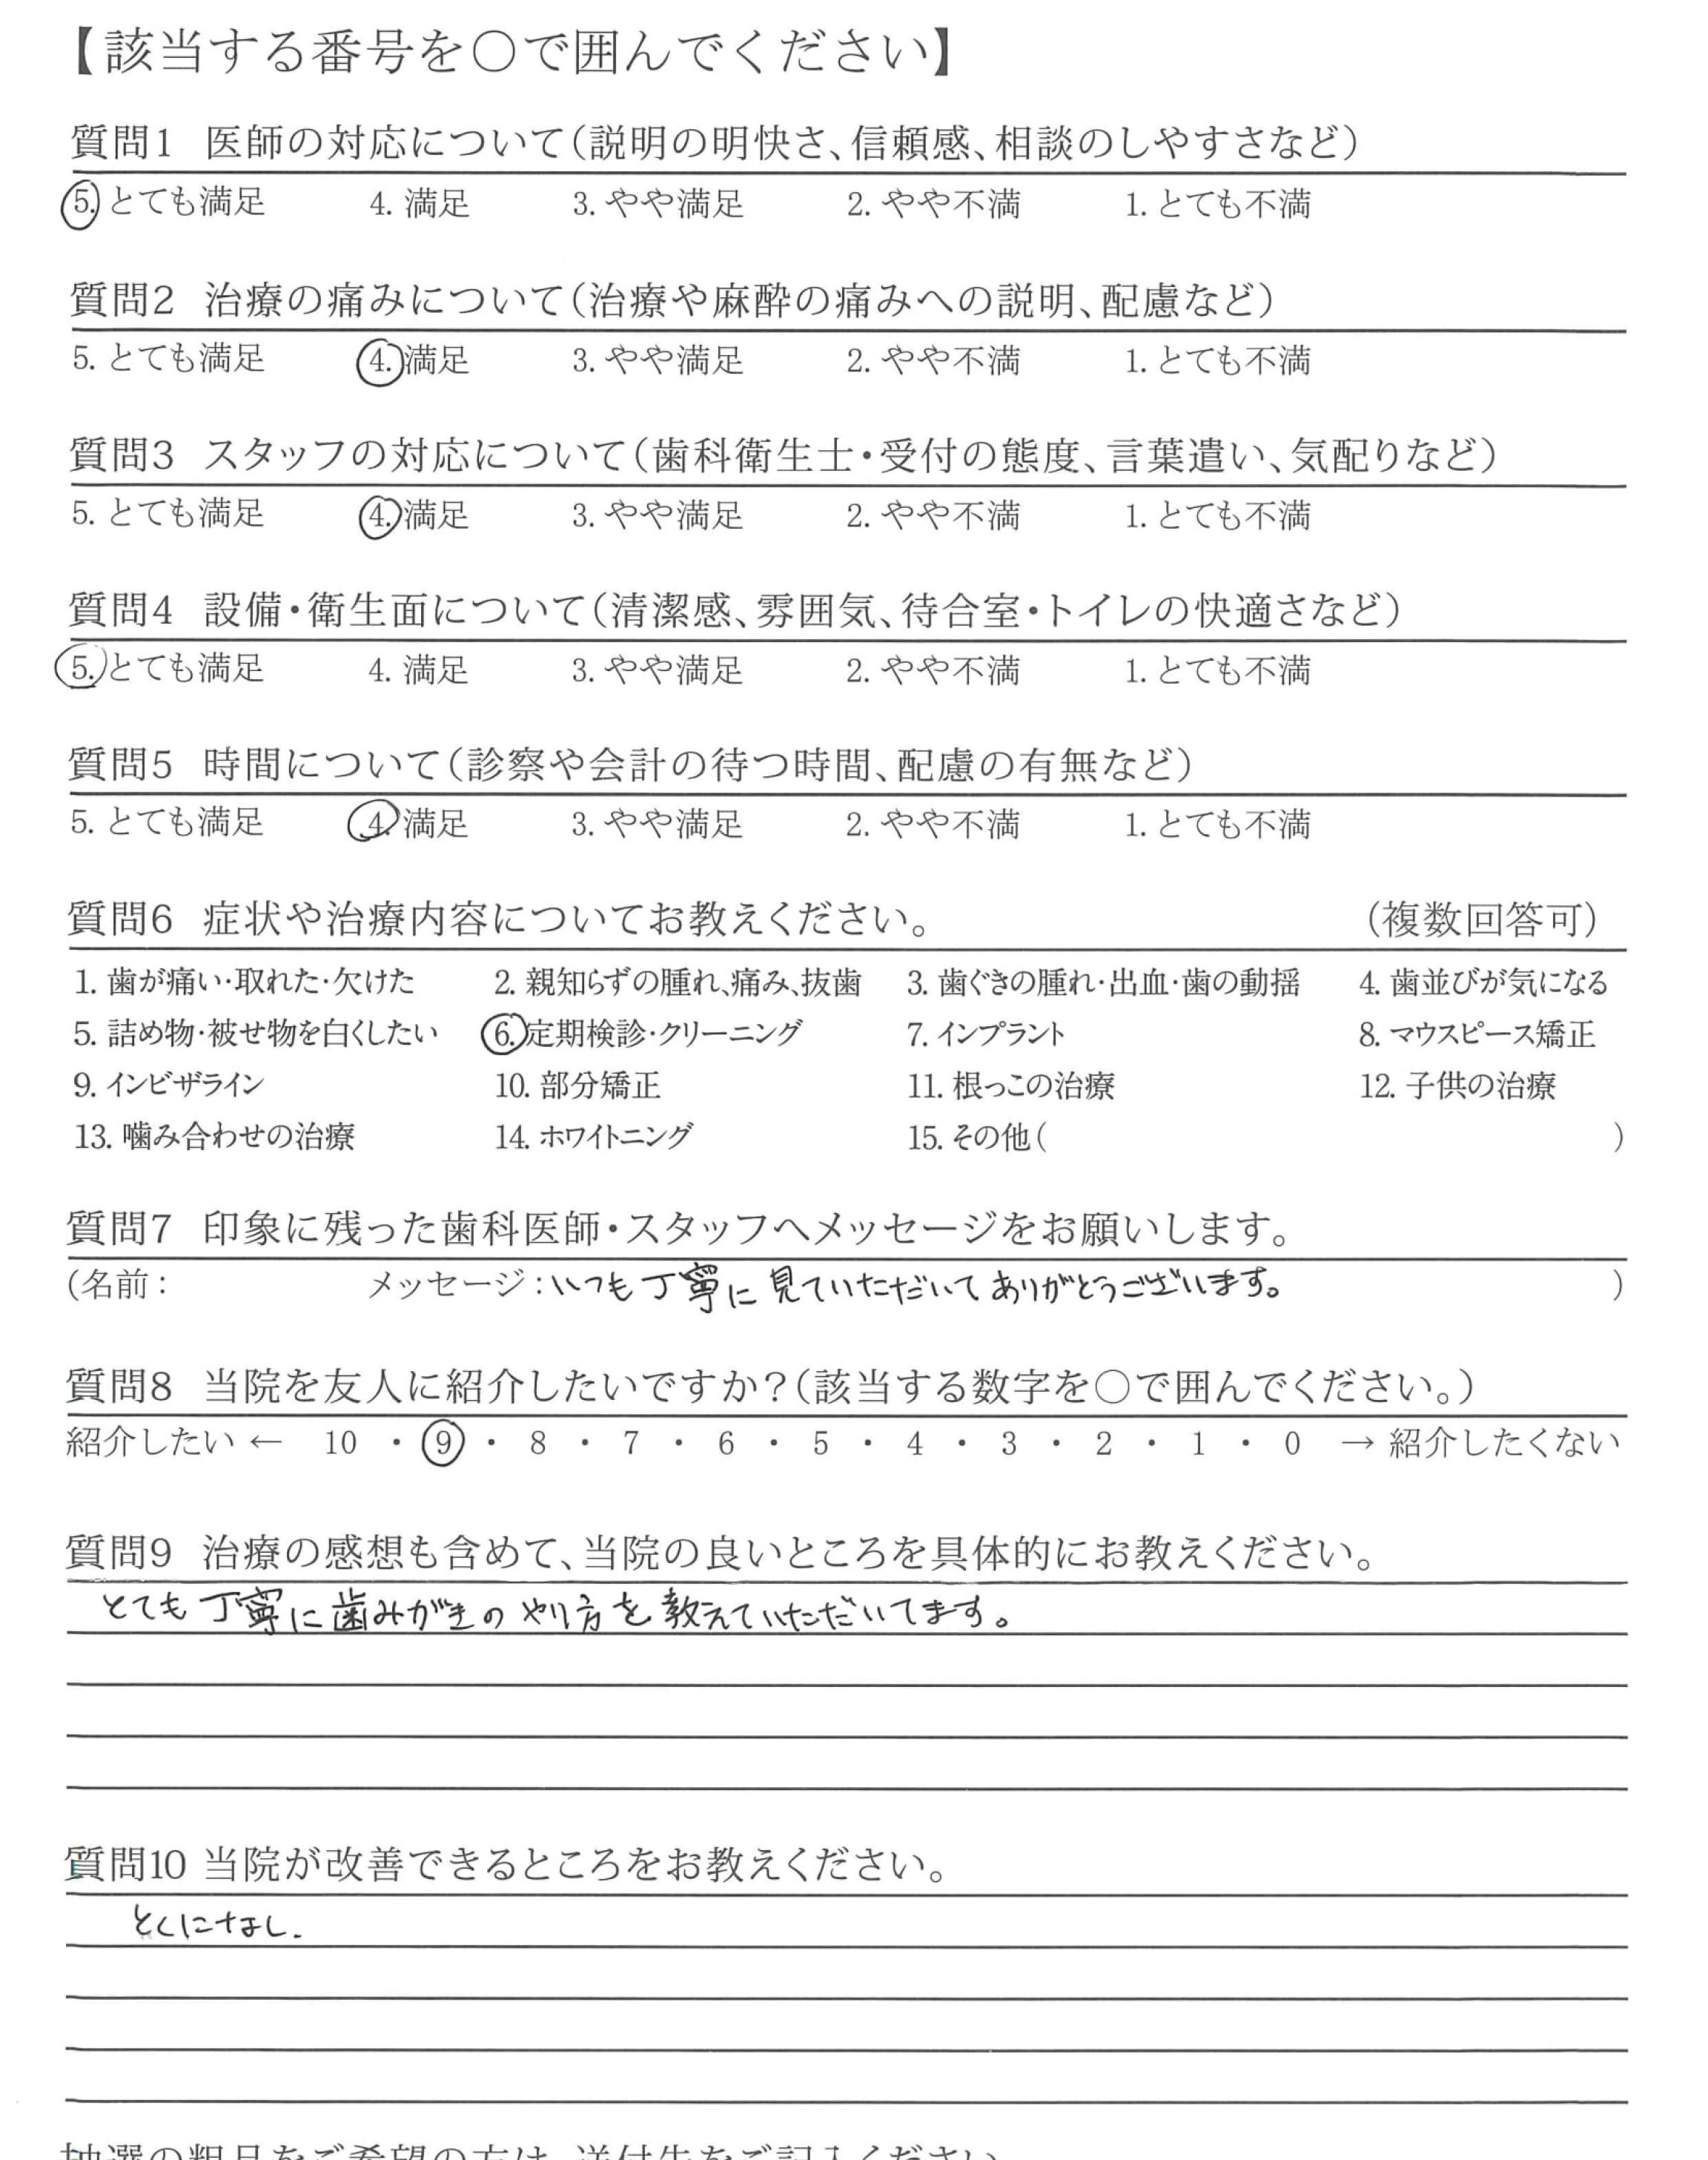 【該当する番号を〇で囲んでください】
質問1 医師の対応について(説明の明快さ、信頼感、相談のしやすさなど)
5. とても満足 4. 満足 3. やや満足 2. やや不満 1. とても不満
質問2 治療の痛みについて(治療や麻酔の痛みへの説明、配慮など)
5. とても満足 4. 満足 3. やや満足 2. やや不満 1. とても不満
質問3 スタッフの対応について(歯科衛生士・受付の態度、言葉遣い、気配りなど)
5. とても満足 4. 満足 3. やや満足 2. やや不満 1. とても不満
質問4 設備・衛生面について(清潔感、雰囲気、待合室・トイレの快適さなど)
5. とても満足 4. 満足 3. やや満足 2. やや不満 1. とても不満
質問5 時間について(診察や会計の待つ時間、配慮の有無など)
5. とても満足 4. 満足 3. やや満足 2. やや不満 1. とても不満
質問6 症状や治療内容についてお教えください。 (複数回答可)
1. 歯が痛い・取れた・欠けた 2. 親知らずの腫れ、痛み、抜歯 3. 歯ぐきの腫れ・出血・歯の動揺 4. 歯並びが気になる
5. 詰め物・被せ物を白くしたい 6. 定期検診・クリーニング 7. インプラント 8. マウスピース矯正
9. インビザライン 10. 部分矯正 11. 根っこの治療 12. 子供の治療
13. 噛み合わせの治療 14. ホワイトニング 15. その他( )
質問7 印象に残った歯科医師・スタッフへメッセージをお願いします。
(名前: メッセージ:いつも丁寧に見ていただいてありがとうございます。 )
質問8 当院を友人に紹介したいですか?(該当する数字を〇で囲んでください。)
紹介したい ← 10 ・ 9 ・ 8 ・ 7 ・ 6 ・ 5 ・ 4 ・ 3 ・ 2 ・ 1 ・ 0 → 紹介したくない
質問9 治療の感想も含めて、当院の良いところを具体的にお教えください。
とても丁寧に歯みがきのやり方を教えていただいてます。
質問10 当院が改善できるところをお教えください。
とくになし.
抽選の粗品をご希望の方は、送付先をご記入ください